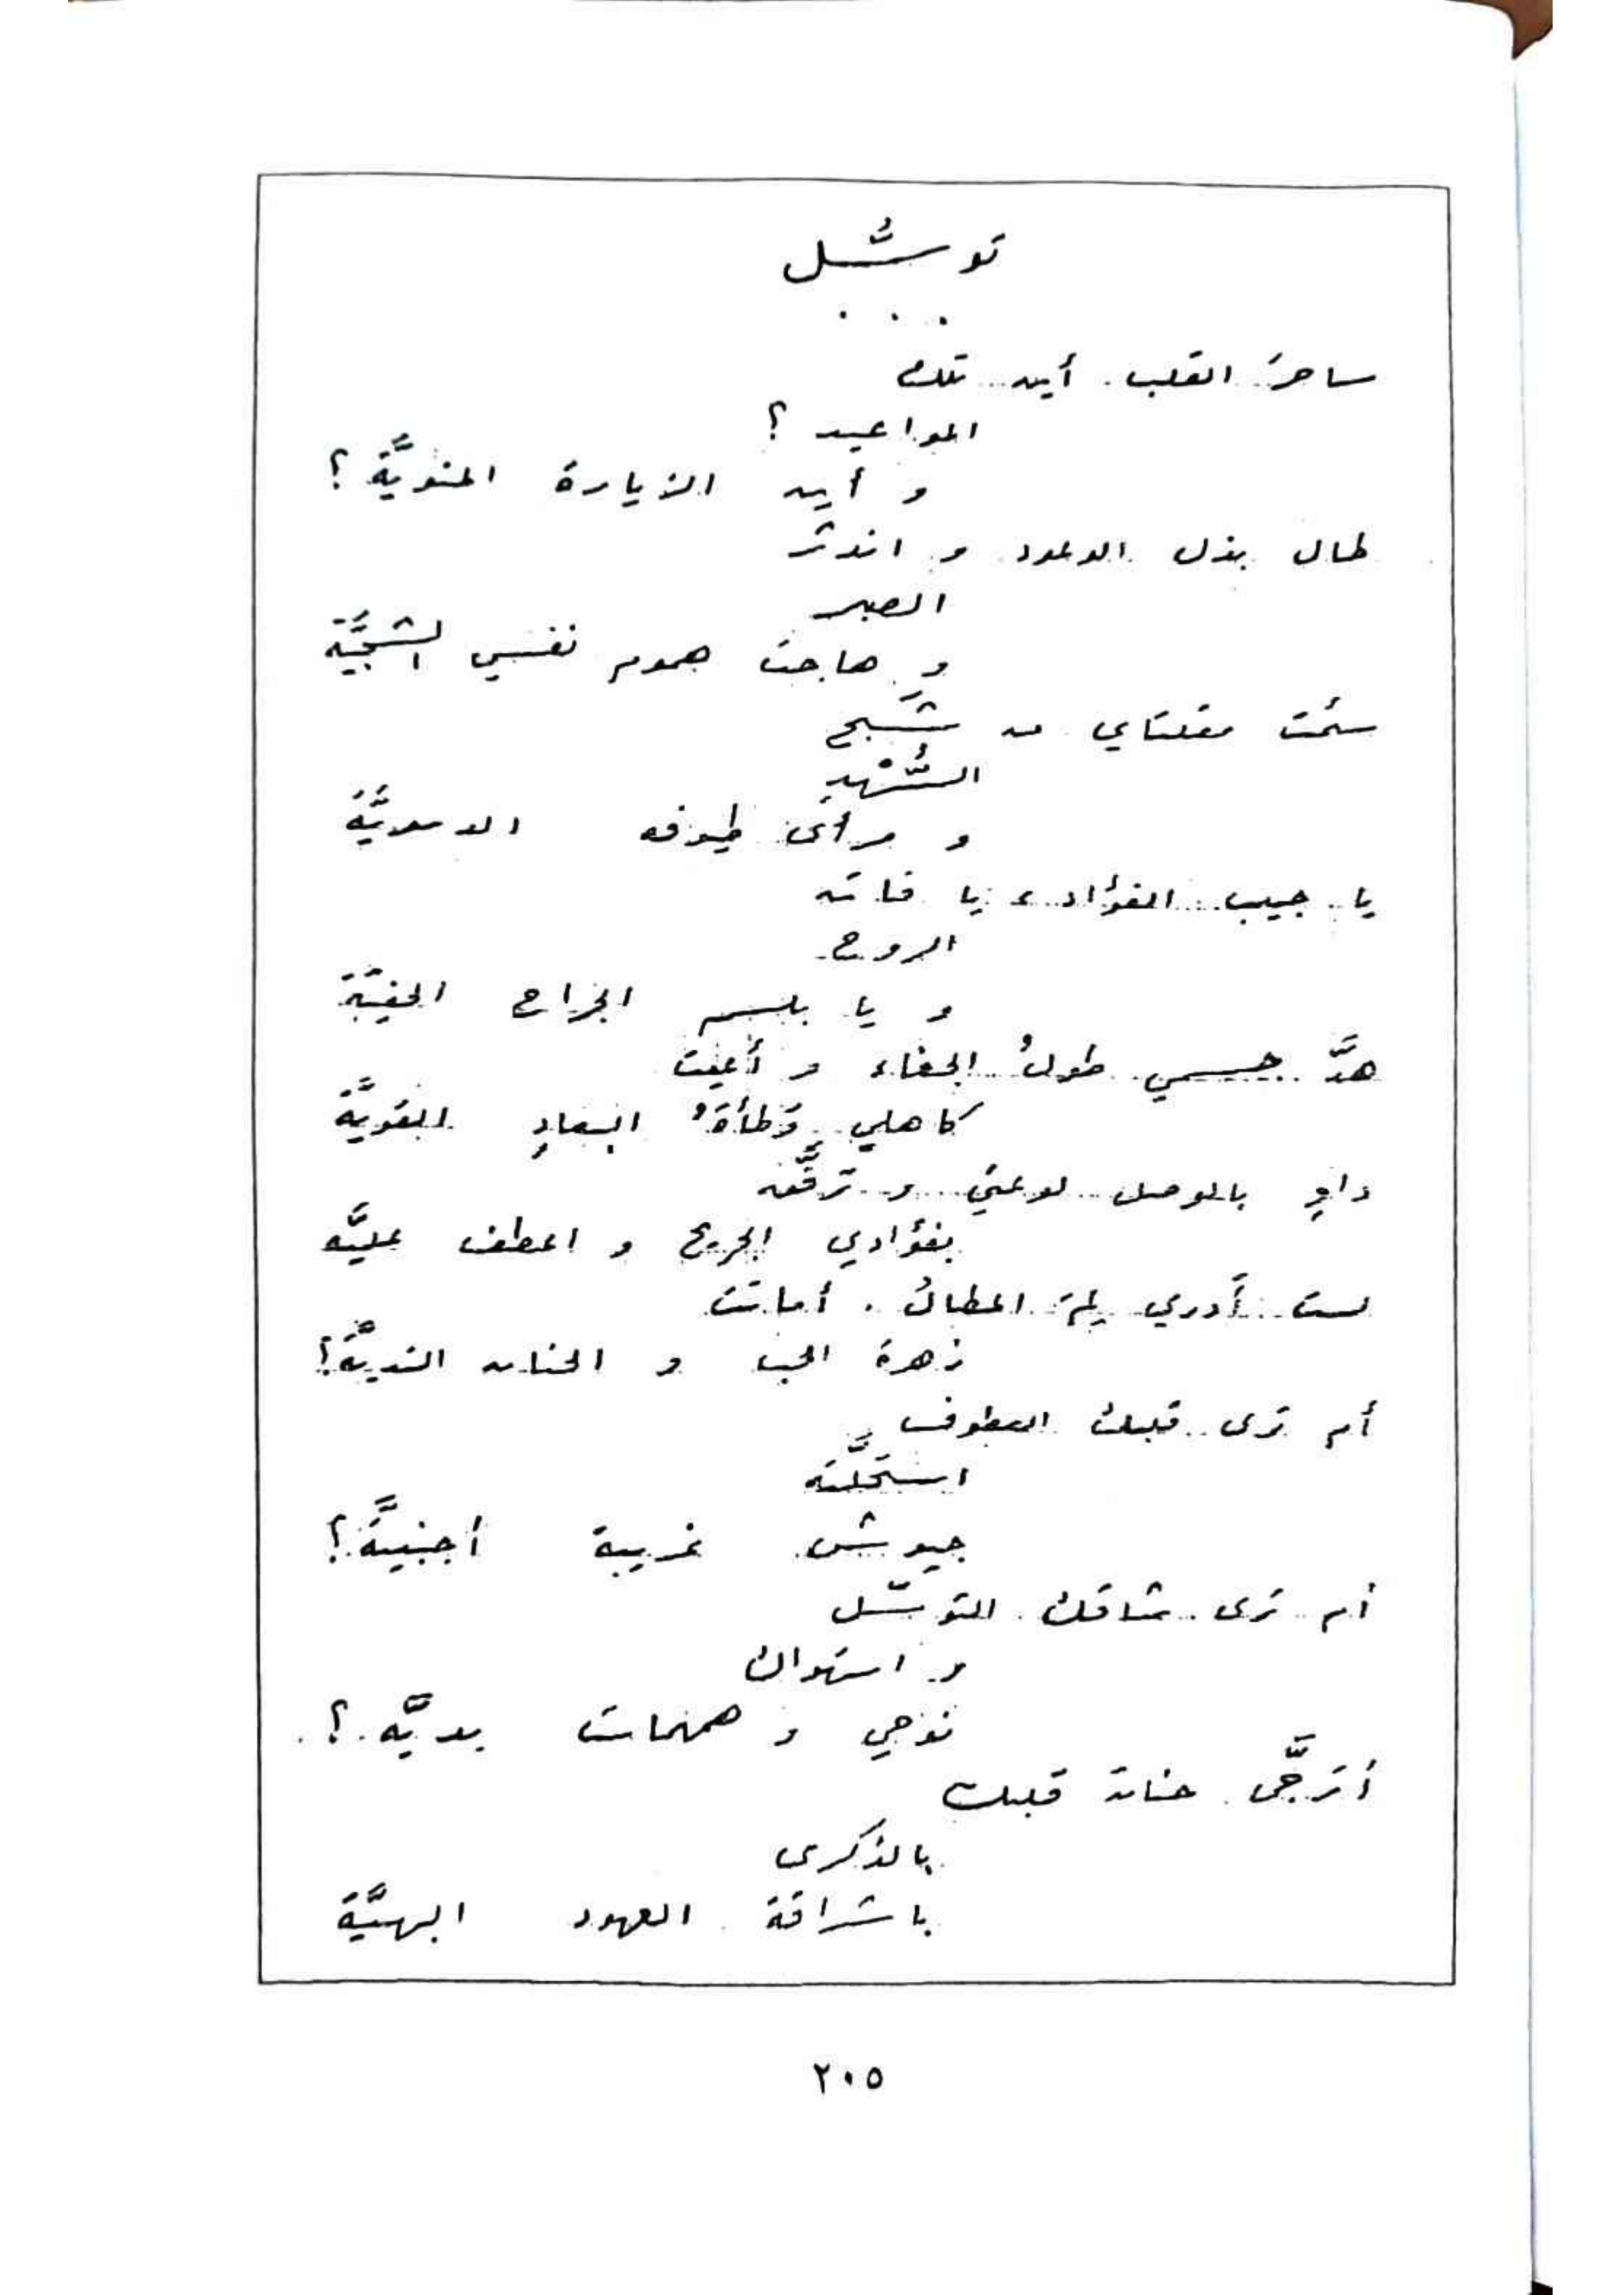 توسُّل
...
ساحرَ القلب . أين تلك
المواعيد ؟
و أين الزيارة المنويَّة ؟
طال بذل الوعود و اندثر
الصبر
و هاجت هموم نفسي الشجيَّة
سئمت مقلتاي من شَبح
السُّهْدِ
و مرأى طيوفه الدمويَّة
يا حبيب الفؤاد ، يا فاتن
الروح
و يا بلسم الجراح الخفيّة
هدَّ جسمي طولُ الجفاء و أعيت
كاهلي وَطأةُ البعادِ القويَّة
داوِ بالوصل لوعتي و ترفَّق
بفؤادي الجريح و اعطف عليَّه
لست أدري لِمَ المطالُ . أماتت
زهرة الحب و الحنان النديَّة ؟!
أم ترى قلبك العطوف
استحلَّته
جيوش غريبة أجنبيَّة ؟!
أم ترى شاقك التوسّل
و استهواك
نوحي و همهمات يديَّه . ؟ .
أترجَّى حنان قلبك
بالذكرى
باشراقة العهود البهيَّة
٢٠٥